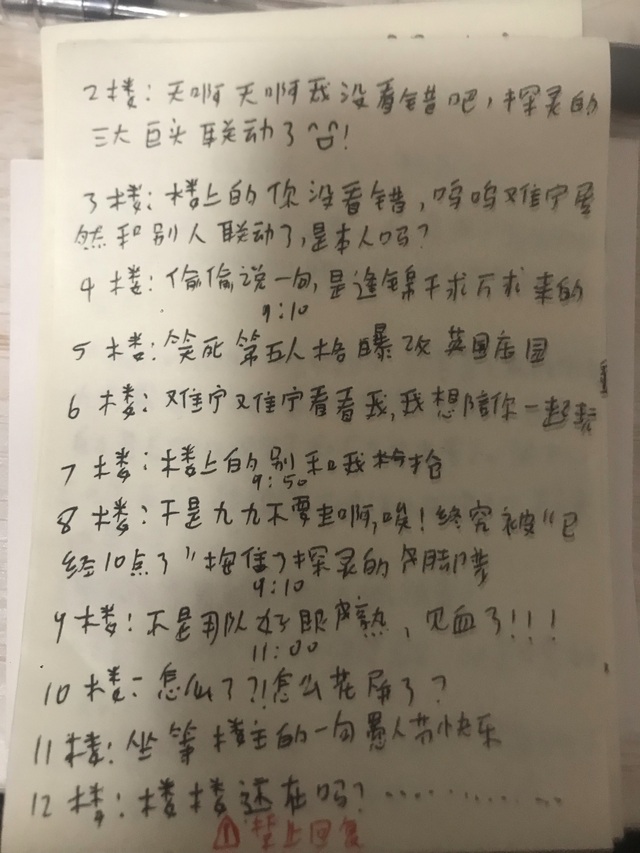 2楼：天啊天啊我没看错吧，探灵的
三大巨头联动了
3楼：楼上的你没看错，呜呜难宁居
然和别人联动了，是本人吗？
4楼：偷偷说一句，是逢锦千求万求来的
9:10
5楼：笑死第五人格曝改英国庄园
6楼：难宁难宁看看我，我想陪你一起
7楼：楼上的别和我抢
9:50
8楼：不是九九不要走啊，唉！终究被“已
经10点了”掩住了探灵的
9:10
9楼：不是用队友好眼熟，见血了！！！
11:00
10楼：怎么了？！怎么花屏了？
11楼：坐等楼主的一句愚人节快乐
12楼：楼楼还在吗？…………
禁止回复